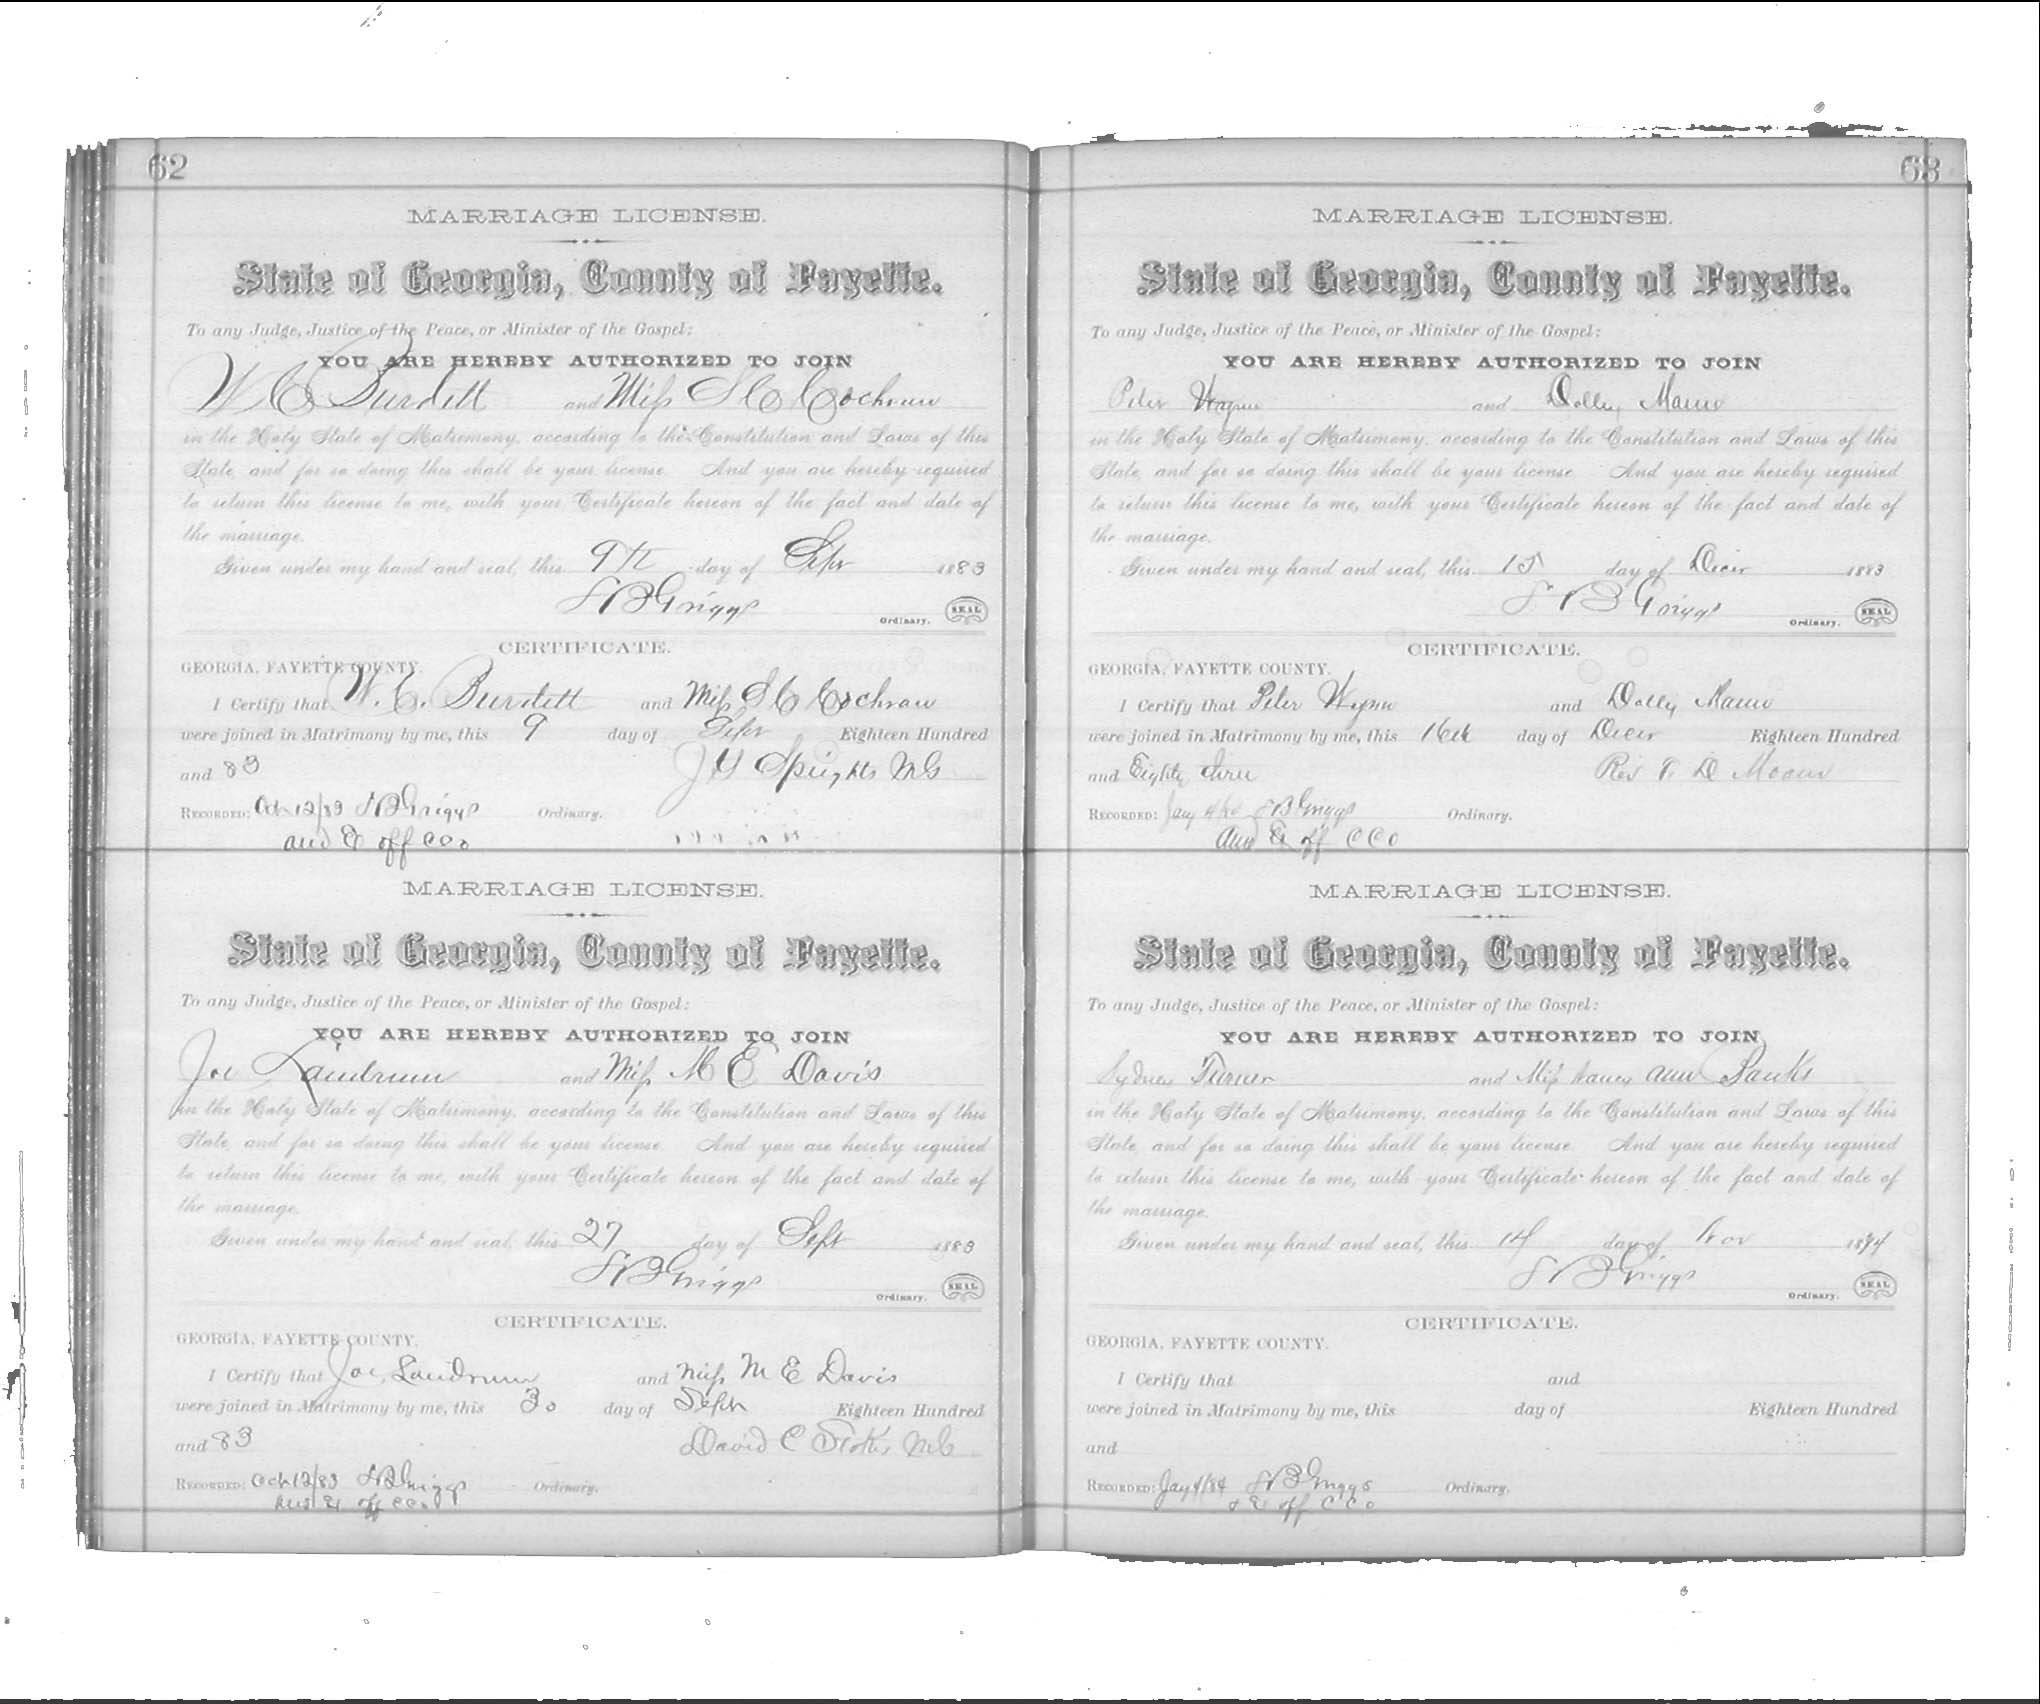 62
MARRIAGE LICENSE.
State of Georgia, County of Fayette.
To any Judge, Justice of the Peace, or Minister of the Gospel:
YOU ARE HEREBY AUTHORIZED TO JOIN
W C Burdett and Miss S C Cochran
in the Holy State of Matrimony, according to the Constitution and Laws of this
State, and for so doing this shall be your license. And you are hereby required
to return this license to me, with your Certificate hereon of the fact and date of
the marriage.
Given under my hand and seal, this 9th day of Sepr 1883
S B Griggs
Ordinary. SEAL
CERTIFICATE.
GEORGIA, FAYETTE COUNTY.
I Certify that W. C. Burdett and Miss S C Cochran
were joined in Matrimony by me, this 9 day of Sepr Eighteen Hundred
and 83 Speights MG
RECORDED: Oct 12/83 S B Griggs Ordinary.
and Ex off CCO
MARRIAGE LICENSE.
State of Georgia, County of Fayette.
To any Judge, Justice of the Peace, or Minister of the Gospel:
YOU ARE HEREBY AUTHORIZED TO JOIN
Joe Landrum and Miss M E Davis
in the Holy State of Matrimony, according to the Constitution and Laws of this
State, and for so doing this shall be your license. And you are hereby required
to return this license to me, with your Certificate hereon of the fact and date of
the marriage.
Given under my hand and seal, this 27 day of Sept 1883
S B Griggs
Ordinary. SEAL
CERTIFICATE.
GEORGIA, FAYETTE COUNTY.
I Certify that Joe Landrum and Miss M E Davis
were joined in Matrimony by me, this 30 day of Sept Eighteen Hundred
and 83 David C MG
RECORDED: Oct 12/83 S B Griggs Ordinary.
Ex off CCO
63
MARRIAGE LICENSE.
State of Georgia, County of Fayette.
To any Judge, Justice of the Peace, or Minister of the Gospel:
YOU ARE HEREBY AUTHORIZED TO JOIN
Peter Wynn and Dolly Mann
in the Holy State of Matrimony, according to the Constitution and Laws of this
State, and for so doing this shall be your license. And you are hereby required
to return this license to me, with your Certificate hereon of the fact and date of
the marriage.
Given under my hand and seal, this 15 day of Decr 1883
S B Griggs
Ordinary. SEAL
CERTIFICATE.
GEORGIA, FAYETTE COUNTY.
I Certify that Peter Wynn and Dolly Mann
were joined in Matrimony by me, this 16th day of Decr Eighteen Hundred
and Eighty three Rev
RECORDED: Jany S B Griggs Ordinary.
and Ex off CCO
MARRIAGE LICENSE.
State of Georgia, County of Fayette.
To any Judge, Justice of the Peace, or Minister of the Gospel:
YOU ARE HEREBY AUTHORIZED TO JOIN
Sydney Turner and Miss Nancy Ann Banks
in the Holy State of Matrimony, according to the Constitution and Laws of this
State, and for so doing this shall be your license. And you are hereby required
to return this license to me, with your Certificate hereon of the fact and date of
the marriage.
Given under my hand and seal, this 14 day of Nov
S B Griggs
Ordinary. SEAL
CERTIFICATE.
GEORGIA, FAYETTE COUNTY.
I Certify that and
were joined in Matrimony by me, this day of Eighteen Hundred
and
RECORDED: Jany 4/84 S B Griggs Ordinary.
& Ex off CCO